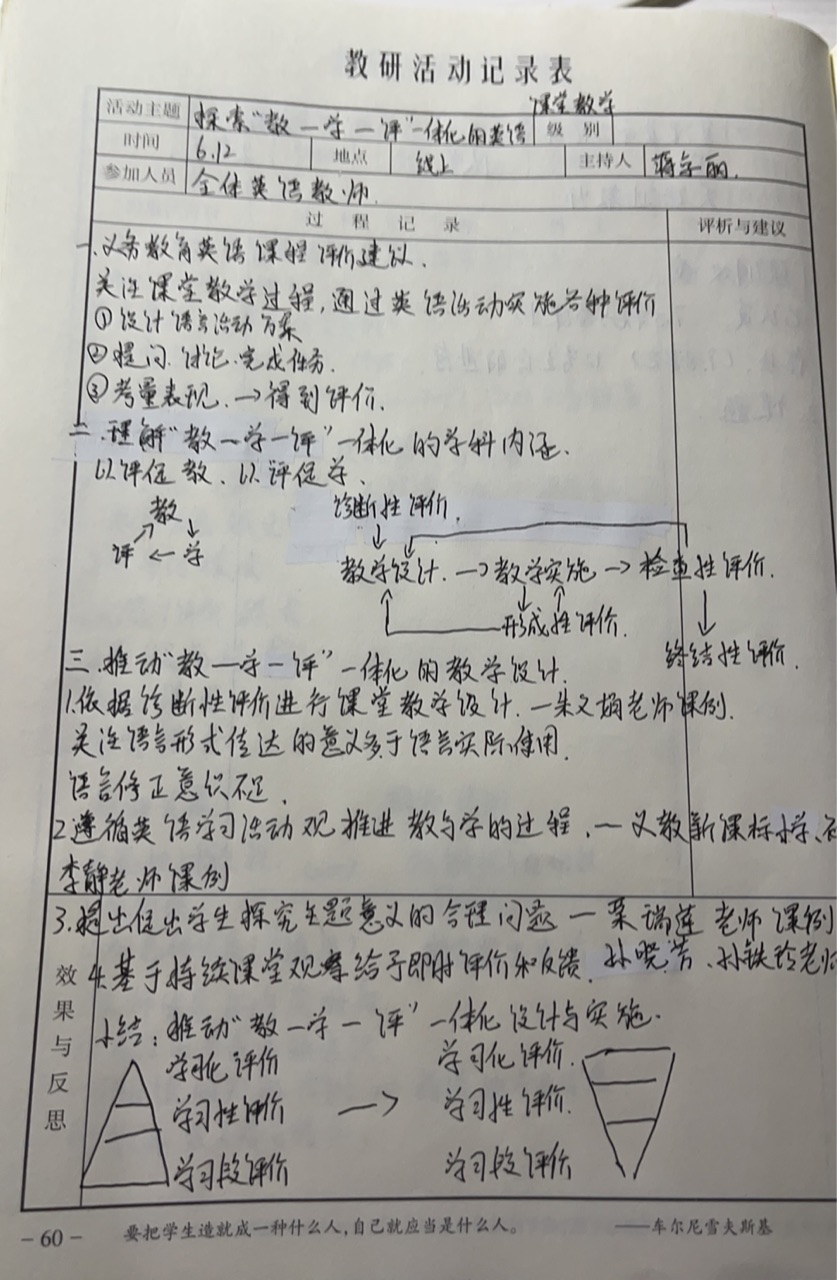 教研活动记录表
课堂教学
活动主题 探索“教—学—评”一体化的英语 级别
时间 6.12 地点 线上 主持人
参加人员 全体英语教师.
过程记录 评析与建议
一.义务教育英语课程评价建议.
关注课堂教学过程,通过英语活动实施各种评价
①设计语言活动方案
②提问.讨论.完成任务.
③考量表现.→得到评价.
二.理解“教—学—评”一体化的学科内涵.
以评促教、以评促学.
教
评 ← 学
诊断性评价.
教学设计.→教学实施→检查性评价.
形成性评价.
终结性评价.
三.推动“教—学—评”一体化的教学设计.
1.依据诊断性评价进行课堂教学设计.—朱文娟老师课例.
关注语言形式传达的意义多于语言实际使用.
语言修正意识不足.
2.遵循英语学习活动观推进教与学的过程.—义教新课标小学、
李静老师课例
3.提出促出学生探究主题意义的合理问题—栗瑞莲老师课例
4.基于持续课堂观察给予即时评价和反馈.孙晓芳、孙铁玲老师
效果与反思
小结:推动“教—学—评”一体化设计与实施.
学习化评价 学习化评价.
学习性评价 → 学习性评价.
学习段评价 学习段评价
-60- 要把学生造就成一种什么人,自己就应当是什么人。 ——车尔尼雪夫斯基